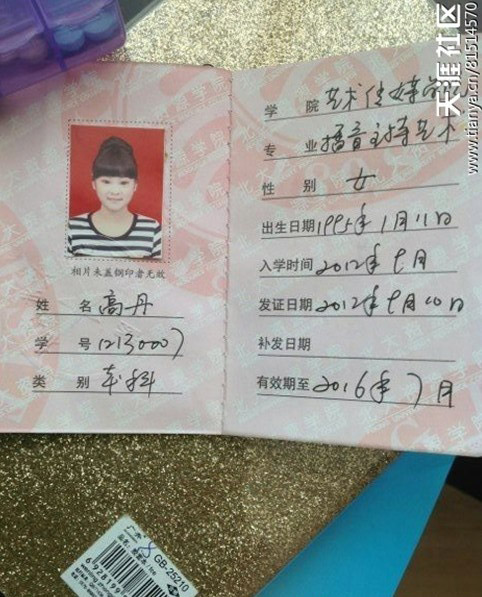 天涯社区
www.tianya.cn/81514570
相片未盖钢印者无效
姓 名 高丹
学 号 12130007
类 别 本科
学 院 艺术传媒学院
专 业 播音主持艺术
性 别 女
出生日期 1995年1月11日
入学时间 2012年9月
发证日期 2012年9月10日
补发日期
有效期至 2016年7月
GB-25210
6928199